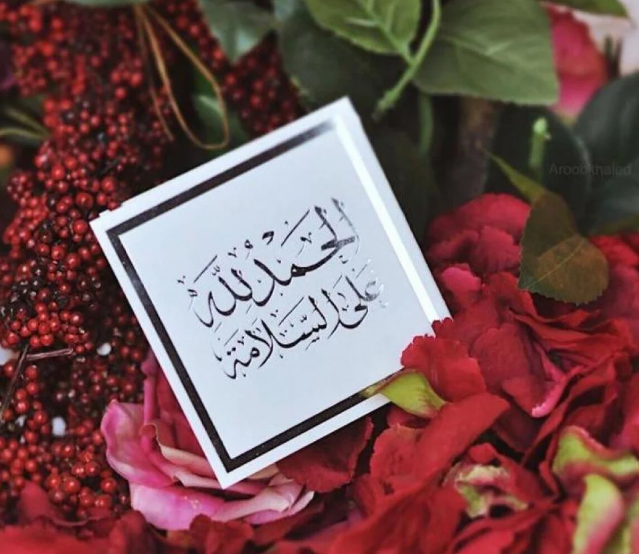 الحَمْدُ للهِ
عَلى السَّلامَة
Aroobkhaled